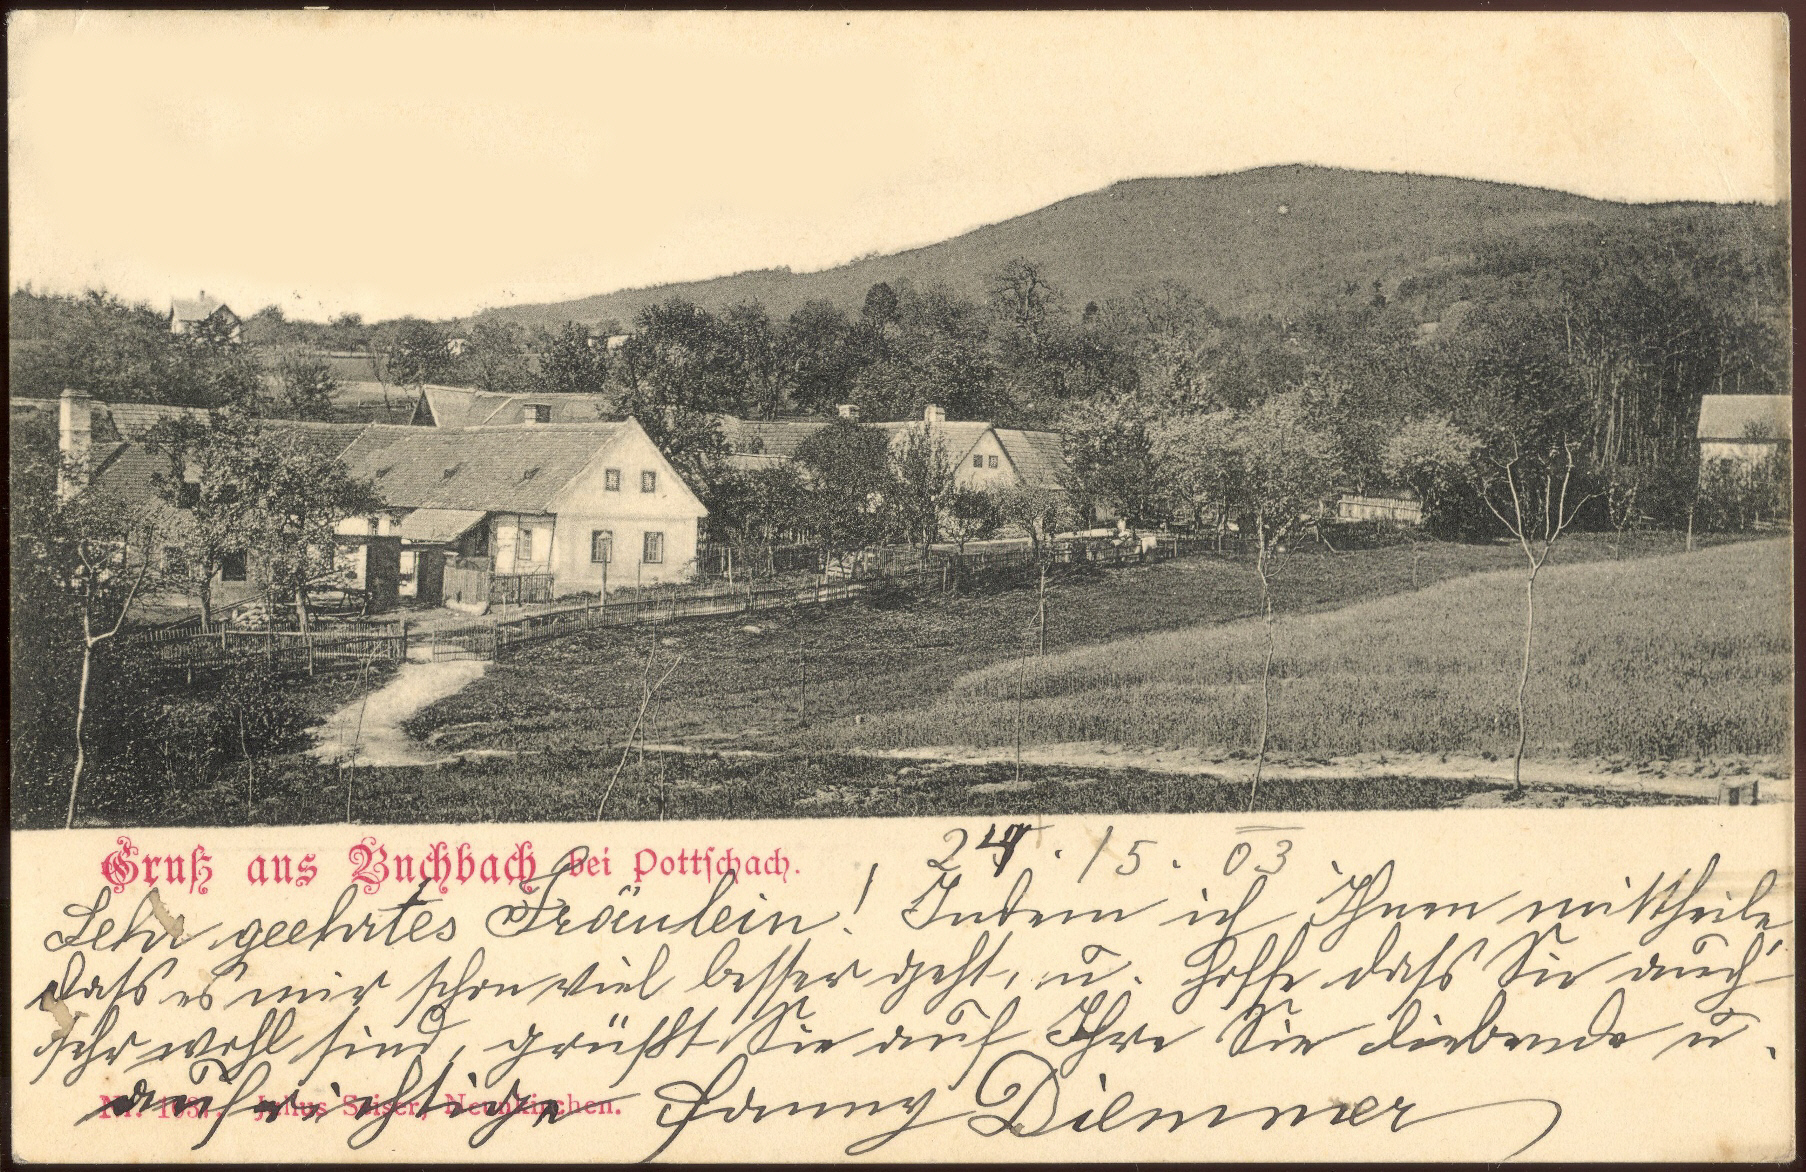 Gruß aus Buchbach bei Pottschach.
24. /5. 03
Sehr geehrtes Fräulein! Indem ich Ihnen mittheile
dass es mir schon viel besser geht, u. hoffe dass Sie auch
sehr wohl sind, grüßt Sie auf Ihre Sie liebende u.
aufrichtige Fanny Diemmer
Nr. Julius Seiser, Neunkirchen.